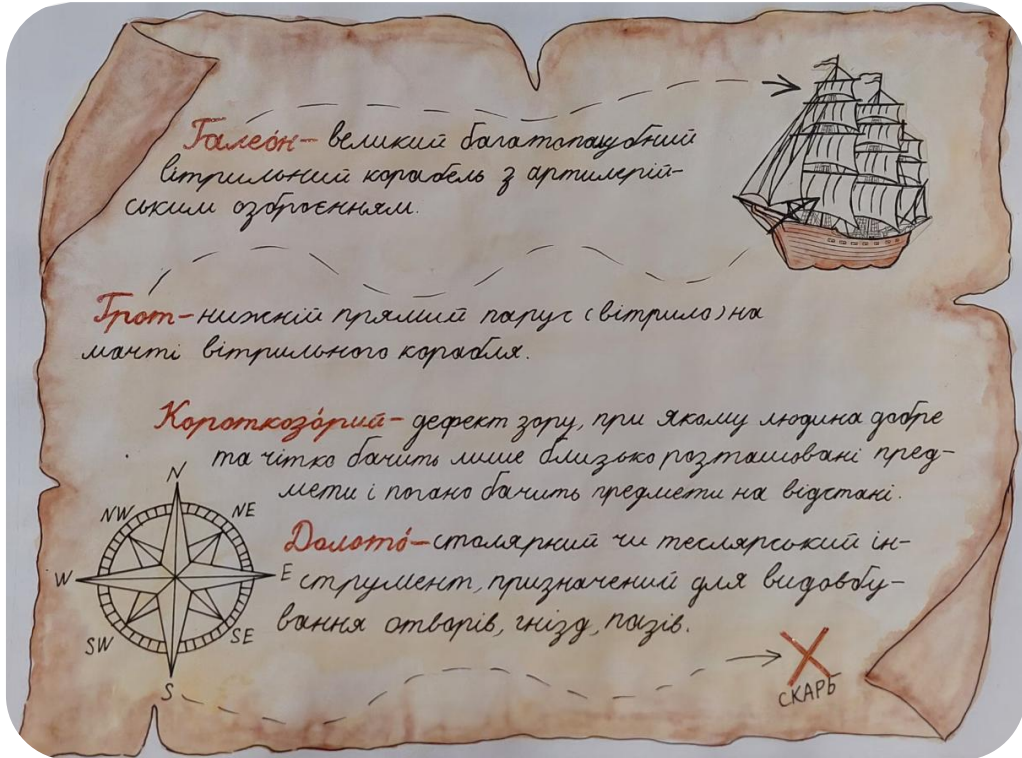 Галео́н – великий багатопалубний
вітрильний корабель з артилерій-
ським озброєнням.
Грот – нижній прямий парус (вітрило) на
мачті вітрильного корабля.
Короткозо́рий – дефект зору, при якому людина добре
та чітко бачить лише близько розташовані пред-
мети і погано бачить предмети на відстані.
Долото́ – столярний чи теслярський ін-
струмент, призначений для видовбу-
вання отворів, гнізд, пазів.
N
NW NE
W E
SW SE
S
СКАРБ